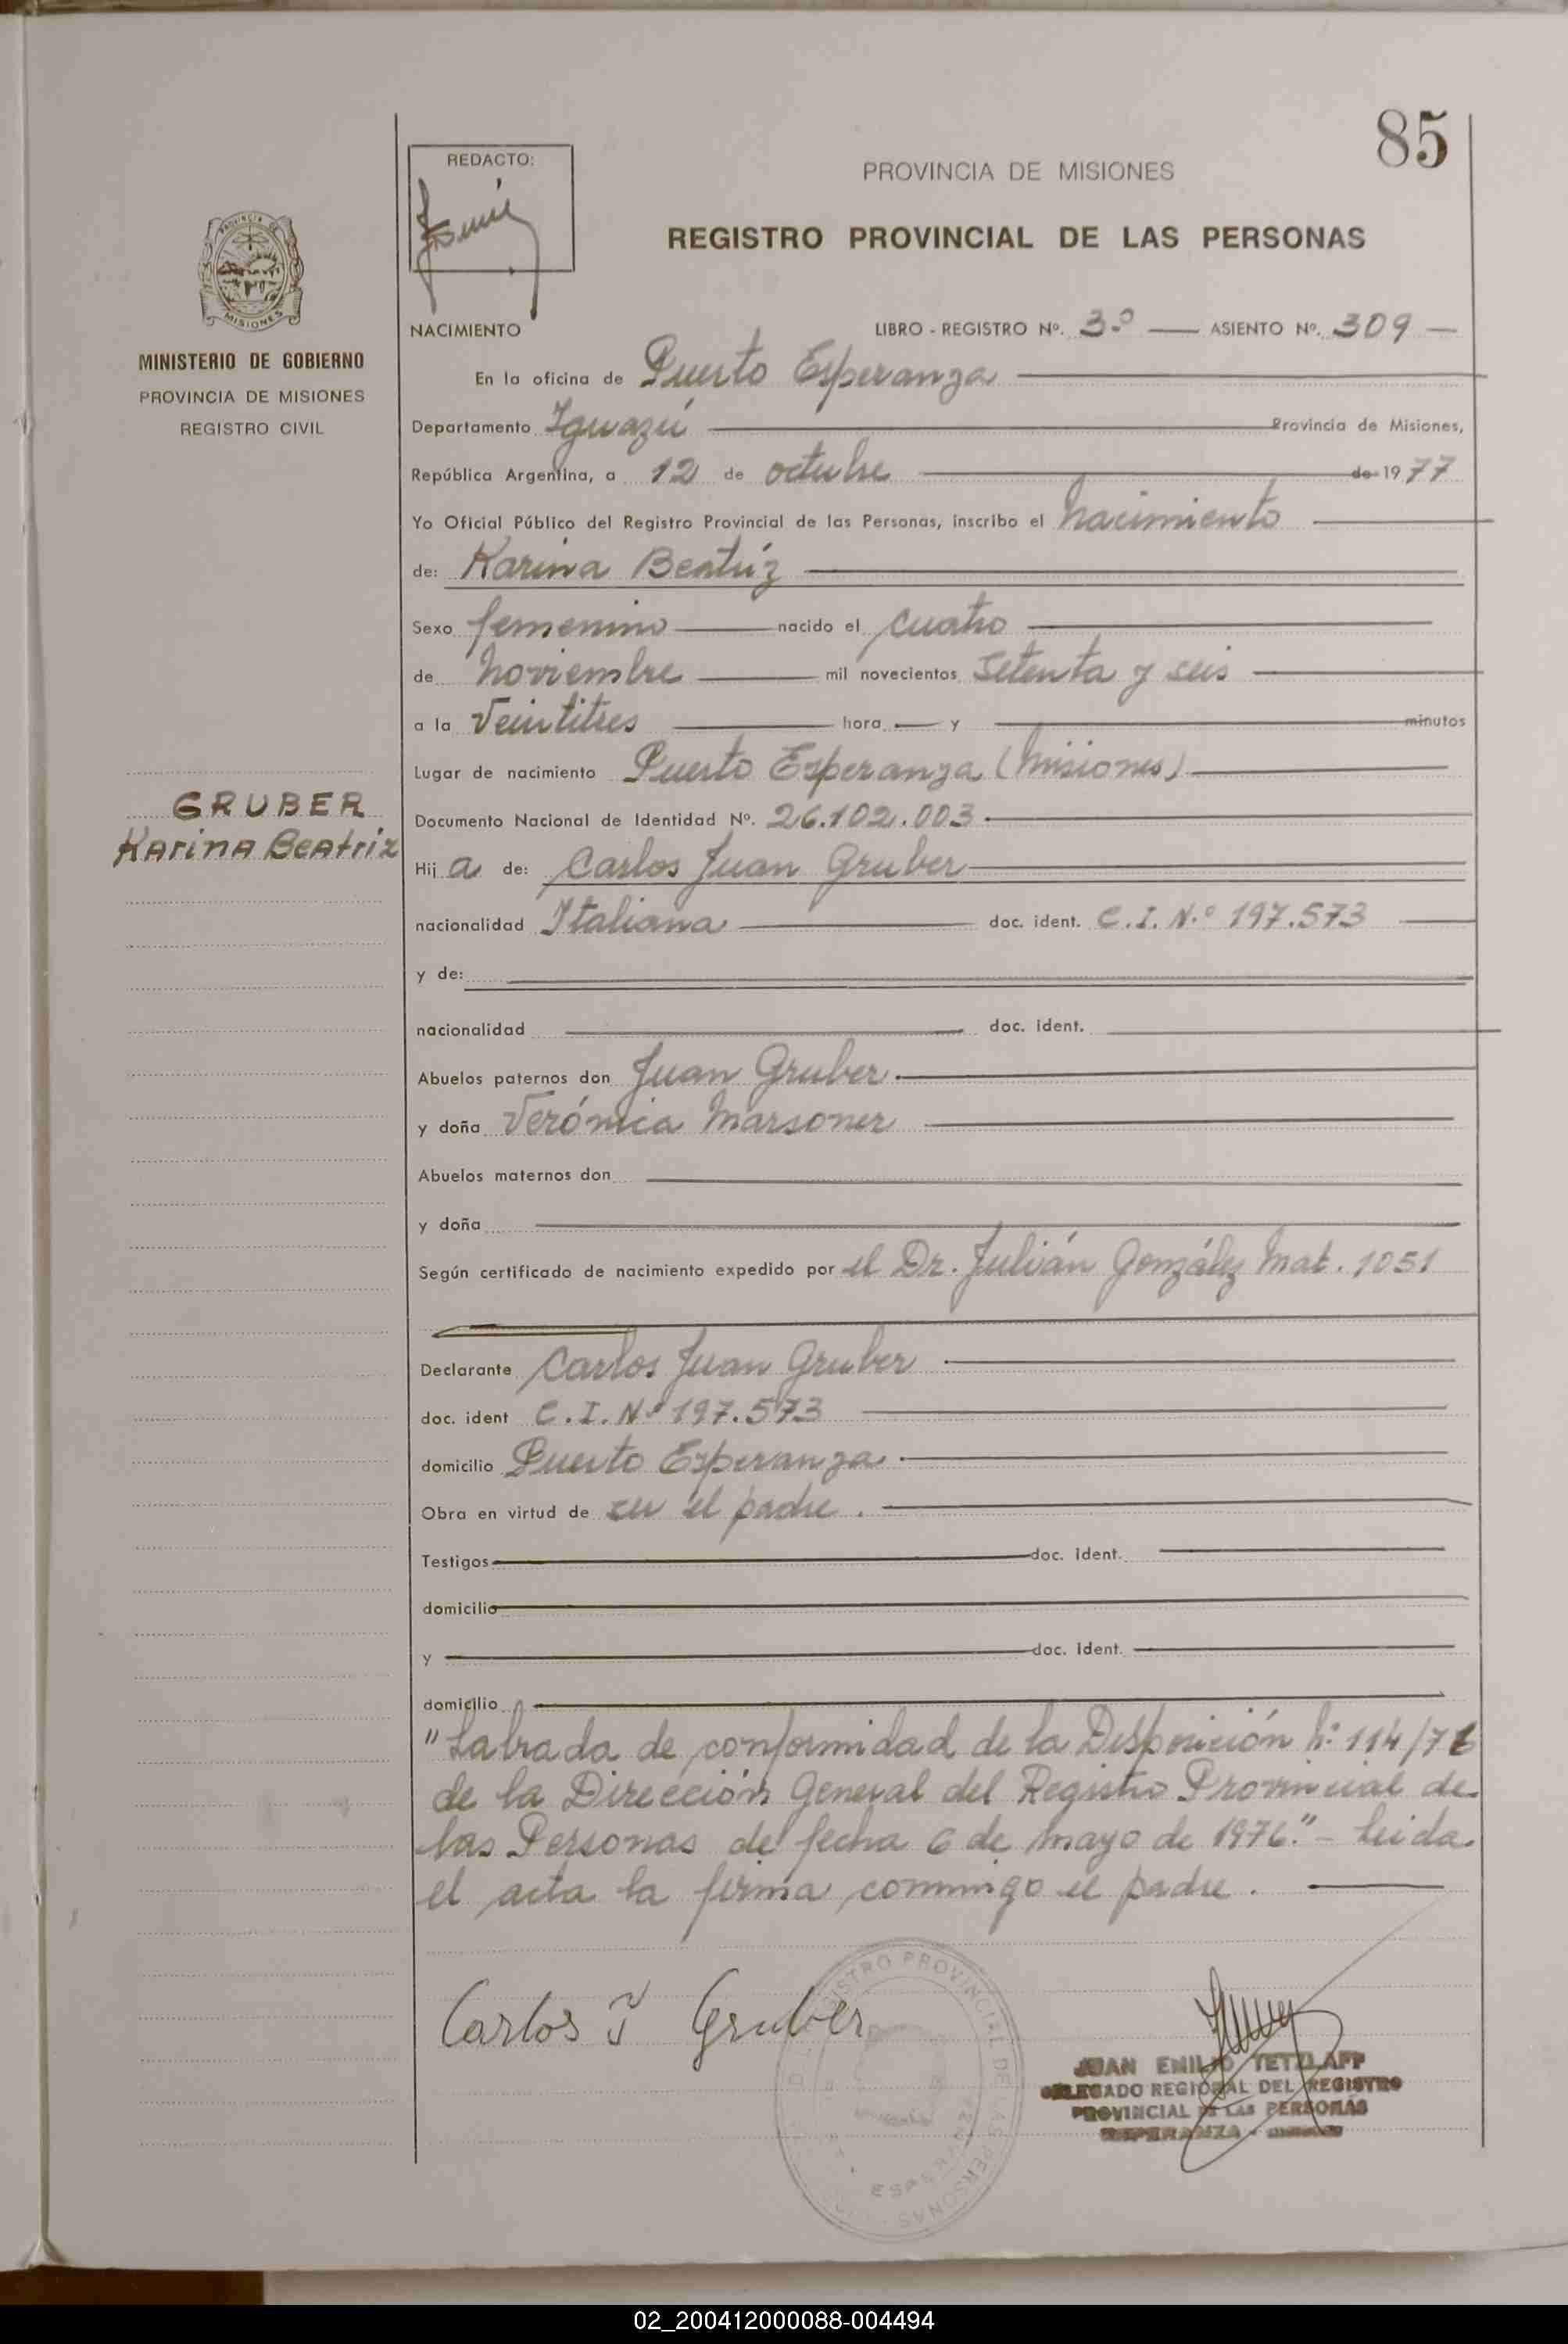 85
REDACTO:
PROVINCIA DE MISIONES
REGISTRO PROVINCIAL DE LAS PERSONAS
PROVINCIA DE
MISIONES
MINISTERIO DE GOBIERNO
PROVINCIA DE MISIONES
REGISTRO CIVIL
GRUBER
Karina Beatriz
NACIMIENTO LIBRO - REGISTRO Nº. 3º ASIENTO Nº. 309
En la oficina de Puerto Esperanza
Departamento Iguazú Provincia de Misiones,
República Argentina, a 12 de octubre de 1977
Yo Oficial Público del Registro Provincial de las Personas, inscribo el nacimiento
de: Karina Beatríz
Sexo femenino nacido el cuatro
de noviembre mil novecientos setenta y seis
a la veintitres hora y minutos
Lugar de nacimiento Puerto Esperanza (Misiones)
Documento Nacional de Identidad Nº. 26.102.003
Hij a de: Carlos Juan Gruber
nacionalidad Italiana doc. ident. C.I.N.º 197.573
y de:
nacionalidad doc. ident.
Abuelos paternos don Juan Gruber.
y doña Verónica Marsoner
Abuelos maternos don
y doña
Según certificado de nacimiento expedido por el Dr. Julián González Mat. 1051
Declarante Carlos Juan Gruber
doc. ident C.I.Nº 197.573
domicilio Puerto Esperanza.
Obra en virtud de ser el padre.
Testigos doc. ident.
domicilio
y doc. ident.
domicilio
"Labrada de conformidad de la Disposición Nº 114/76
de la Dirección General del Registro Provincial de
las Personas de fecha 6 de mayo de 1976." - Leida
el acta la firma conmigo el padre.
Carlos J Gruber
REGISTRO PROVINCIAL DE LAS PERSONAS
ESPERANZA
JUAN EMILIO TETZLAFF
DELEGADO REGIONAL DEL REGISTRO
PROVINCIAL DE LAS PERSONAS
ESPERANZA -
02_200412000088-004494